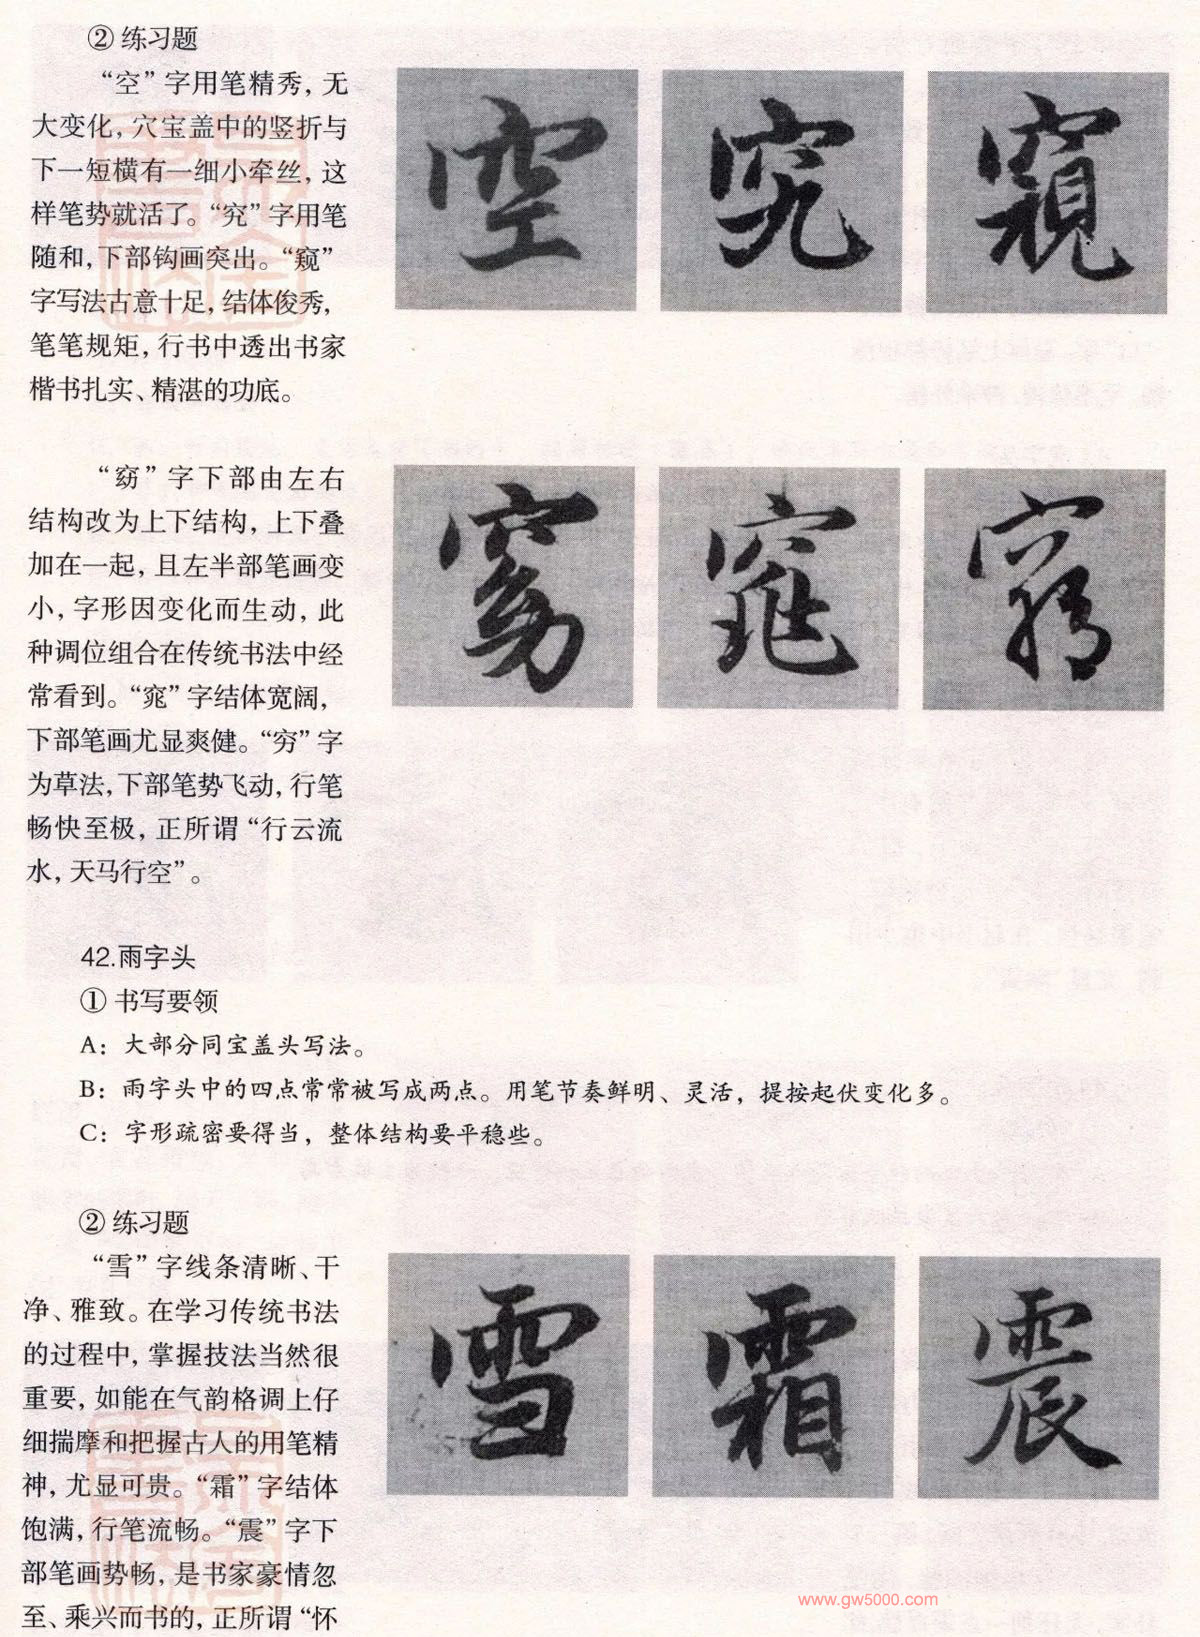 ② 练习题
“空”字用笔精秀，无
大变化，穴宝盖中的竖折与
下一短横有一细小牵丝，这
样笔势就活了。“究”字用笔
随和，下部钩画突出。“窥”
字写法古意十足，结体俊秀，
笔笔规矩，行书中透出书家
楷书扎实、精湛的功底。
空 究 窥
“窈”字下部由左右
结构改为上下结构，上下叠
加在一起，且左半部笔画变
小，字形因变化而生动，此
种调位组合在传统书法中经
常看到。“窕”字结体宽阔，
下部笔画尤显爽健。“穷”字
为草法，下部笔势飞动，行笔
畅快至极，正所谓“行云流
水，天马行空”。
窈 窕 窮
42.雨字头
① 书写要领
A：大部分同宝盖头写法。
B：雨字头中的四点常常被写成两点。用笔节奏鲜明、灵活，提按起伏变化多。
C：字形疏密要得当，整体结构要平稳些。
② 练习题
“雪”字线条清晰、干
净、雅致。在学习传统书法
的过程中，掌握技法当然很
重要，如能在气韵格调上仔
细揣摩和把握古人的用笔精
神，尤显可贵。“霜”字结体
饱满，行笔流畅。“震”字下
部笔画势畅，是书家豪情忽
至、乘兴而书的，正所谓“怀
雪 霜 震
www.gw5000.com